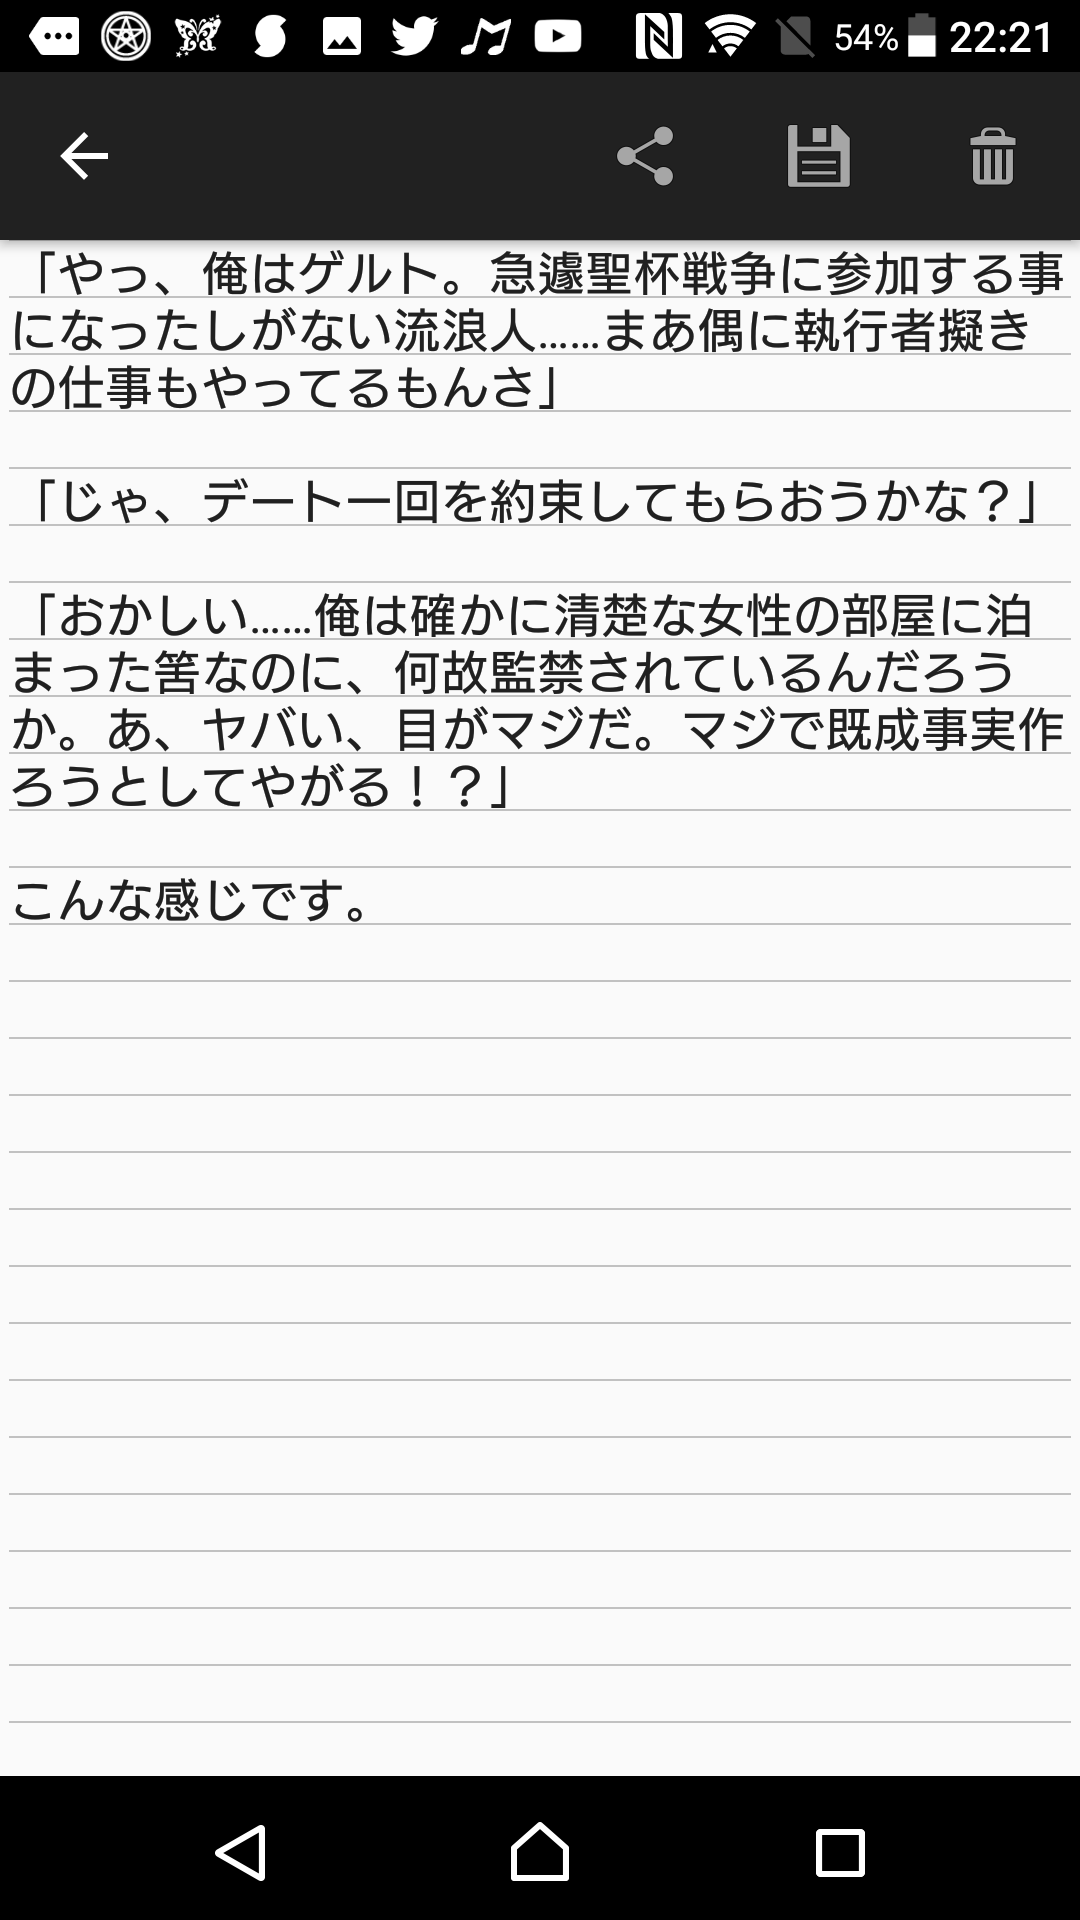 54% 22:21
「やっ、俺はゲルト。急遽聖杯戦争に参加する事
になったしがない流浪人……まあ偶に執行者擬き
の仕事もやってるもんさ」
「じゃ、デート一回を約束してもらおうかな？」
「おかしい……俺は確かに清楚な女性の部屋に泊
まった筈なのに、何故監禁されているんだろう
か。あ、ヤバい、目がマジだ。マジで既成事実作
ろうとしてやがる！？」
こんな感じです。